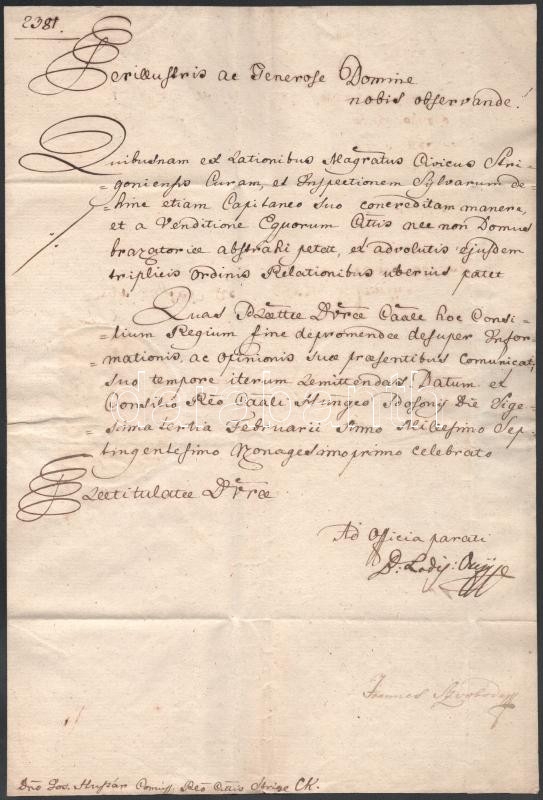 2381.
Perillustris ac Generose Domine
nobis observande!
Quibusnam ex Rationibus Magratus Civicus Stri-
goniensis Curam, et Inspectionem Sylvarum de-
hine etiam Capitaneo suo concreditam manere,
et a Venditione Equorum Cittis nec non Domus
braxatoriæ abstrahi petat, ex advolutis ejusdem
triplicis Ordinis Relationibus uberius patet
Quas Plættæ Dvræ Caale hoc Consi-
lium Regium fine depromendæ desuper Infor-
mationis, ac Opinionis suæ præsentibus Comunicat,
suo tempore iterum remittendas. Datum ex
Consilio Reo Caali Hungco Posonij Die Vige-
sima tertia Februarii Anno Millesimo Sep-
tingentesimo Nonagesimo primo celebrato
Prætitulatæ Dvræ
Ad Officia parati
Joannes
Dno Jos. Huszár Comiss. Reo Cittis Strige CK.